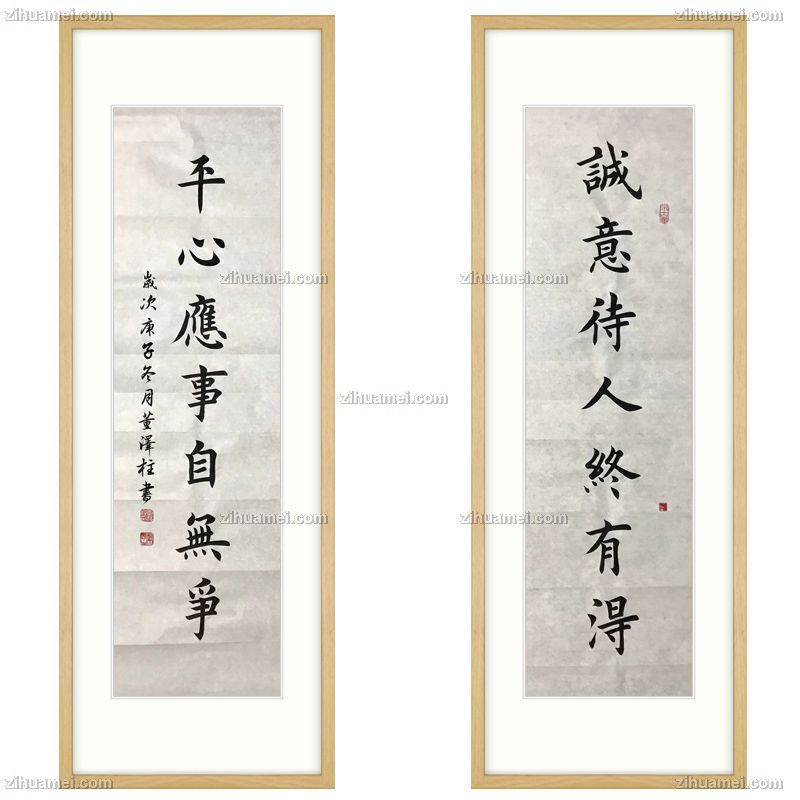 誠意待人終有淂
平心應事自無爭
歲次庚子冬月董澤柱書
zihuamei.com
zihuamei.com
zihuamei.com
zihuamei.com
zihuamei.com
zihuamei.com
zihuamei.com
zihuamei.com
zihuamei.com
zihuamei.com
zihuamei.com